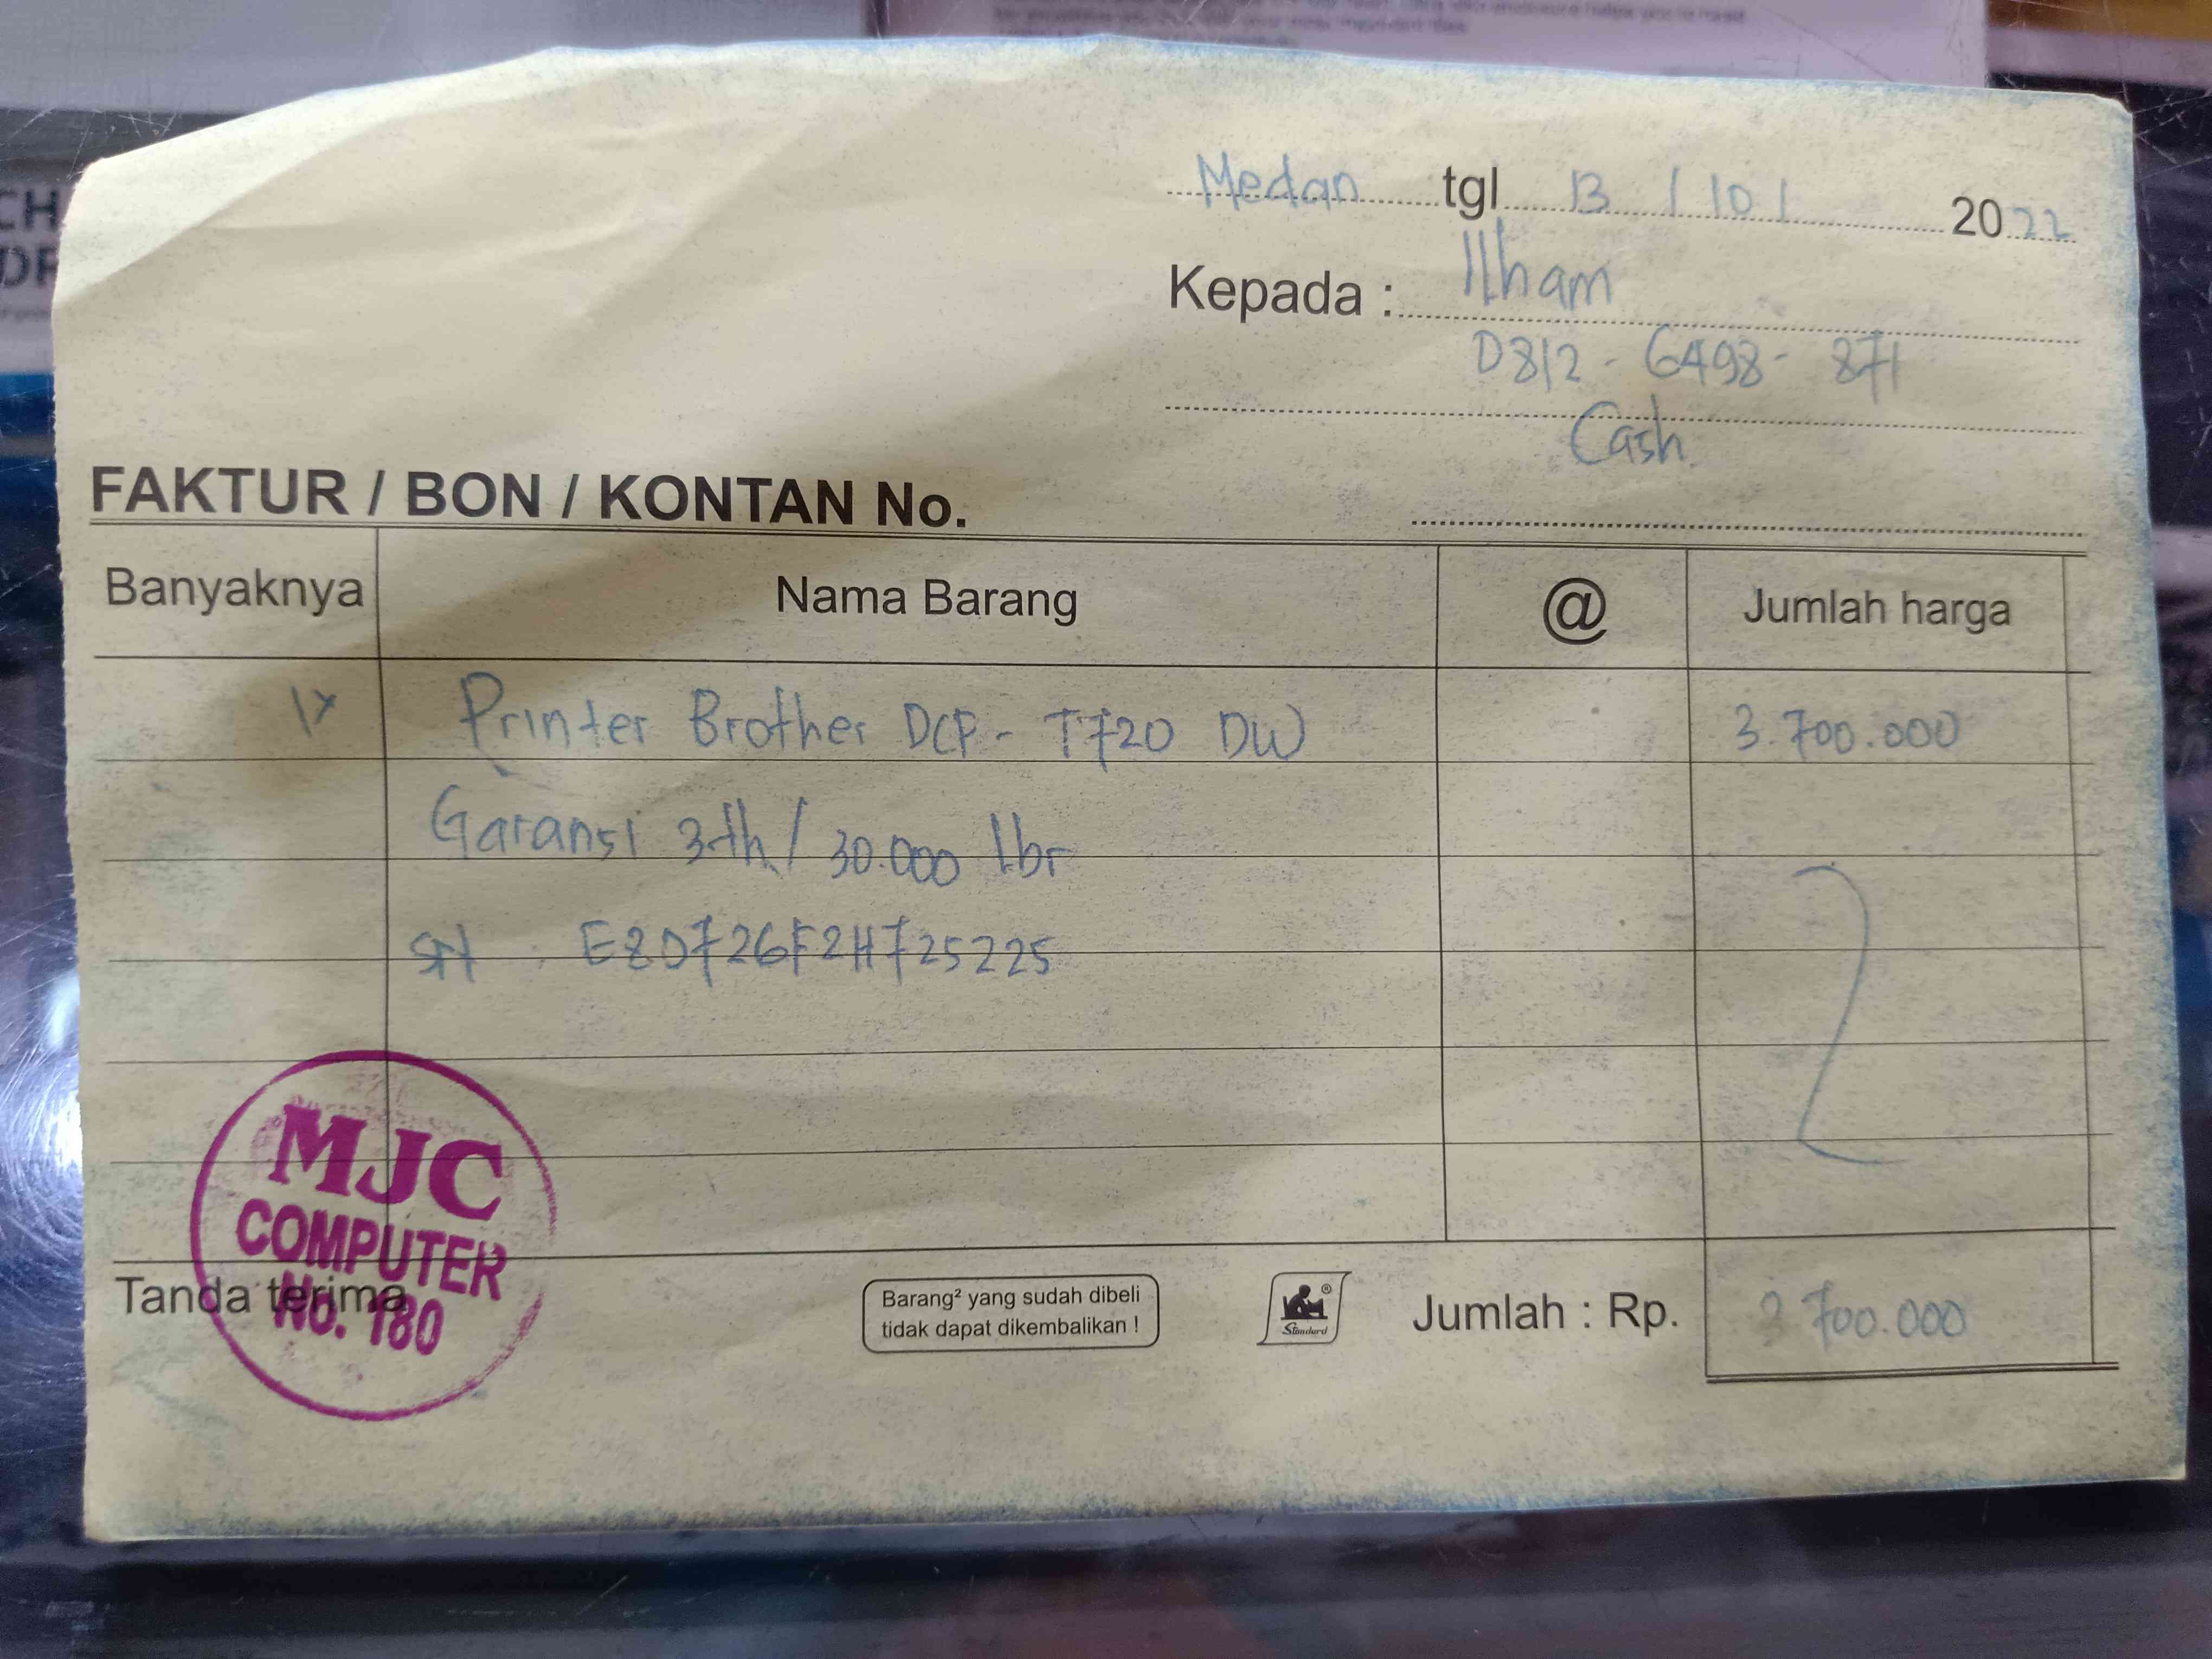 Medan tgl 13 / 10 / 2022
Kepada : Ilham
0812 - 6498 - 871
Cash.
FAKTUR / BON / KONTAN No.
Banyaknya Nama Barang @ Jumlah harga
1x Printer Brother DCP - T720 DW 3.700.000
Garansi 3 th / 30.000 lbr
SN : E80726F2H725225
MJC
COMPUTER
No. 180
Tanda terima
Barang² yang sudah dibeli
tidak dapat dikembalikan !
Standard
®
Jumlah : Rp. 3.700.000